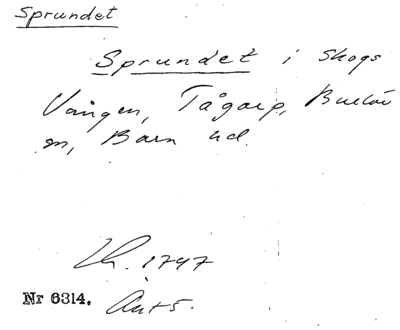 Sprundet
Sprundet i Skogs
Vången, Tågarp, Burlöv
sn, Bara hd.
Lh. 1747
Nr 6314. Akt 5.